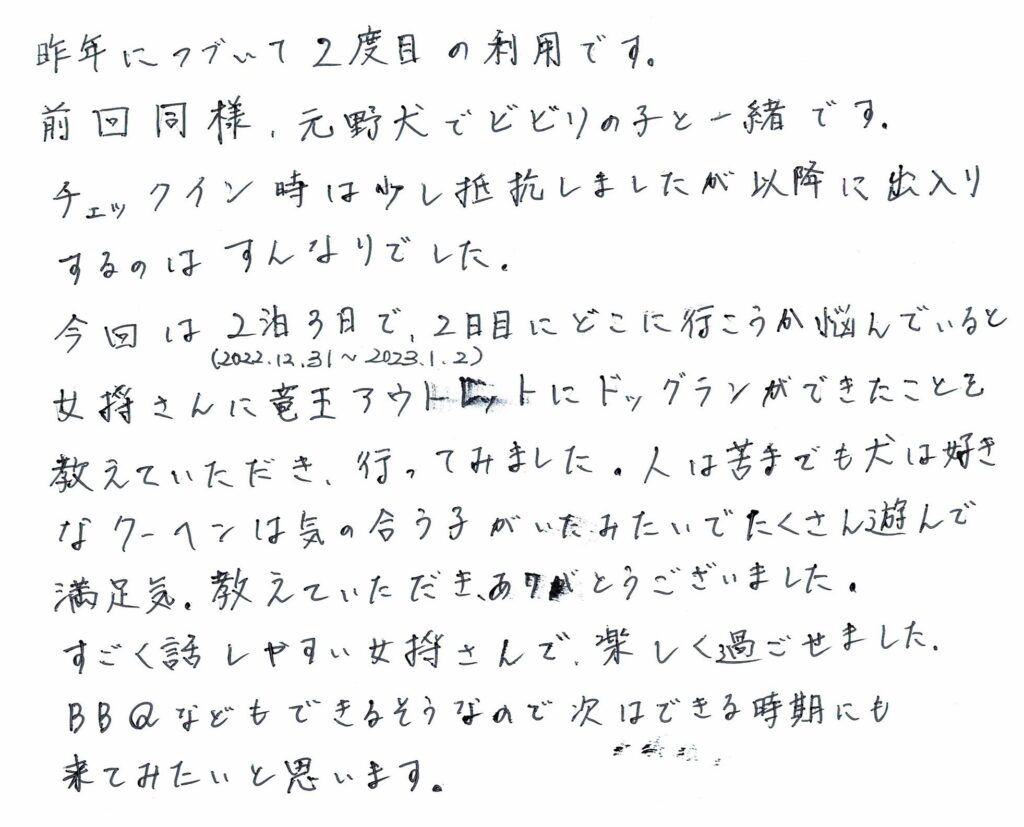 昨年につづいて2度目の利用です。
前回同様、元野犬でビビリの子と一緒です。
チェックイン時は少し抵抗しましたが以降に出入り
するのはすんなりでした。
今回は2泊3日で、2日目にどこに行こうか悩んでいると
(2022.12.31~2023.1.2)
女将さんに竜王アウトレットにドッグランができたことを
教えていただき、行ってみました。人は苦手でも犬は好き
なクーヘンは気の合う子がいたみたいでたくさん遊んで
満足気。教えていただき、ありがとうございました。
すごく話しやすい女将さんで、楽しく過ごせました。
BBQなどもできるそうなので次はできる時期にも
来てみたいと思います。